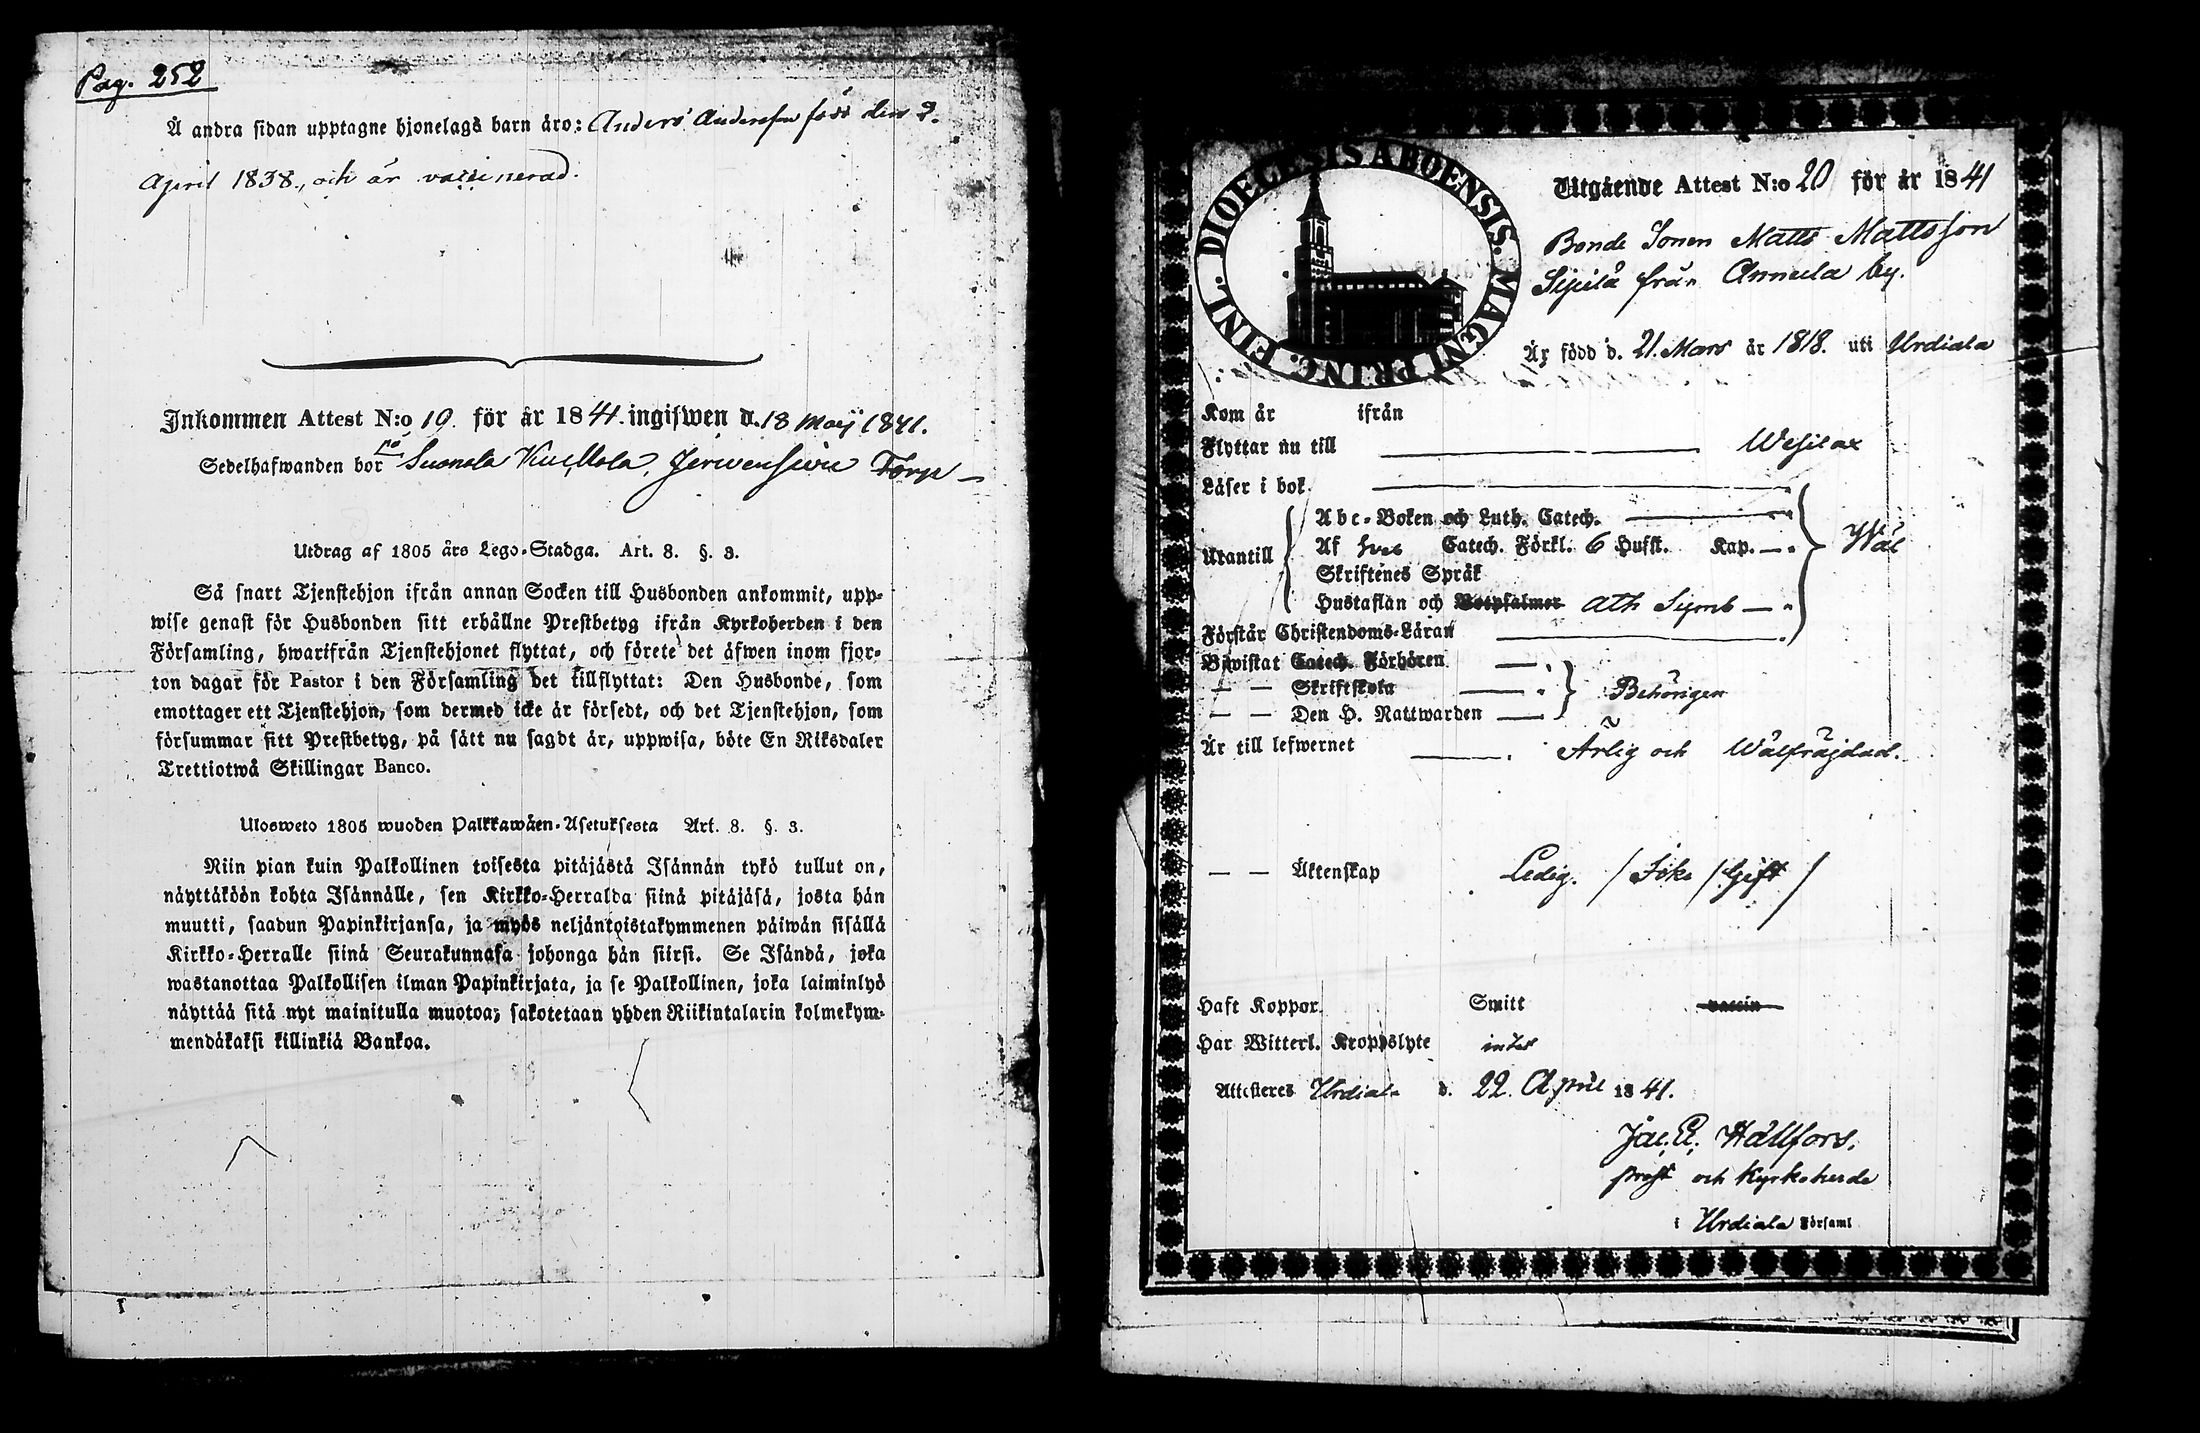 Pag. 252
Å andra sidan upptagne hjonelags barn äro: Anders Andersson född den 2.
April 1838., och är vaccinerad.
Inkommen Attest N:o 19. för år 1841. ingifwen d. 18 Maij 1841.
Sedelhafwanden bor på Suonola Kullola, Jerwensivu Torp
Utdrag af 1805 års Lego-Stadga. Art. 8. §. 3.
Så snart Tjenstehjon ifrån annan Socken till Husbonden ankommit, upp-
wise genast för Husbonden sitt erhållne Prestbetyg ifrån Kyrkoherden i den
Församling, hwarifrån Tjenstehjonet flyttat, och förete det äfwen inom fjor-
ton dagar för Pastor i den Församling det tillflyttat: Den Husbonde, som
emottager ett Tjenstehjon, som dermed icke är försedt, och det Tjenstehjon, som
försummar sitt Prestbetyg, på sätt nu sagdt är, uppwisa, böte En Riksdaler
Trettiotwå Skillingar Banco.
Ulosweto 1805 wuoden Palkkawäen-Asetuksesta Art. 8. §. 3.
Niin pian kuin Palkollinen toisesta pitäjästä Isännän tykö tullut on,
näyttäköön kohta Isännälle, sen Kirkko-Herralda siinä pitäjäsä, josta hän
muutti, saadun Papinkirjansa, ja myös neljäntoistakymmenen päiwän sisällä
Kirkko-Herralle siinä Seurakunnasa johonga hän siirsi. Se Isändä, joka
wastanottaa Palkollisen ilman Papinkirjata, ja se Palkollinen, joka laiminlyö
näyttää sitä nyt mainitulla muotoa; sakotetaan yhden Riikintalarin kolmekym-
mendäkaksi killinkiä Bankoa.
DIOECESIS ABOENSIS. MAGNI PRINC. FINL.
Utgående Attest N:o 20 för år 1841
Bonde Sonen Matts Mattsson
Sipilä från Annula by.
Är född d. 21. Mars år 1818. uti Urdiala
Kom år ifrån
Flyttar nu till Wesilax
Läser i bok.
Abc-Boken och Luth. Catech.
Utantill Af Sveb Catech. Förkl. 6 Hufst. Kap. Wäl
Skriftenes Språk
Hustaflan och Botpsalmer Ath Symb
Förstår Christendoms-Läran
Biwistat Catech. Förhören
— — Skriftskola Behörigen
— — Den H. Nattwarden
Är till lefwernet Ärlig och Wälfräjdad.
— — Äktenskap Ledig. / Icke / Gift /
Haft Koppor. Smitt vaccin
Har Witterl. Kroppslyte intet
Attesteres Urdiala d. 22. April 1841.
Jac. E. Hällfors.
prost och Kyrkoherde
i Urdiala Församl